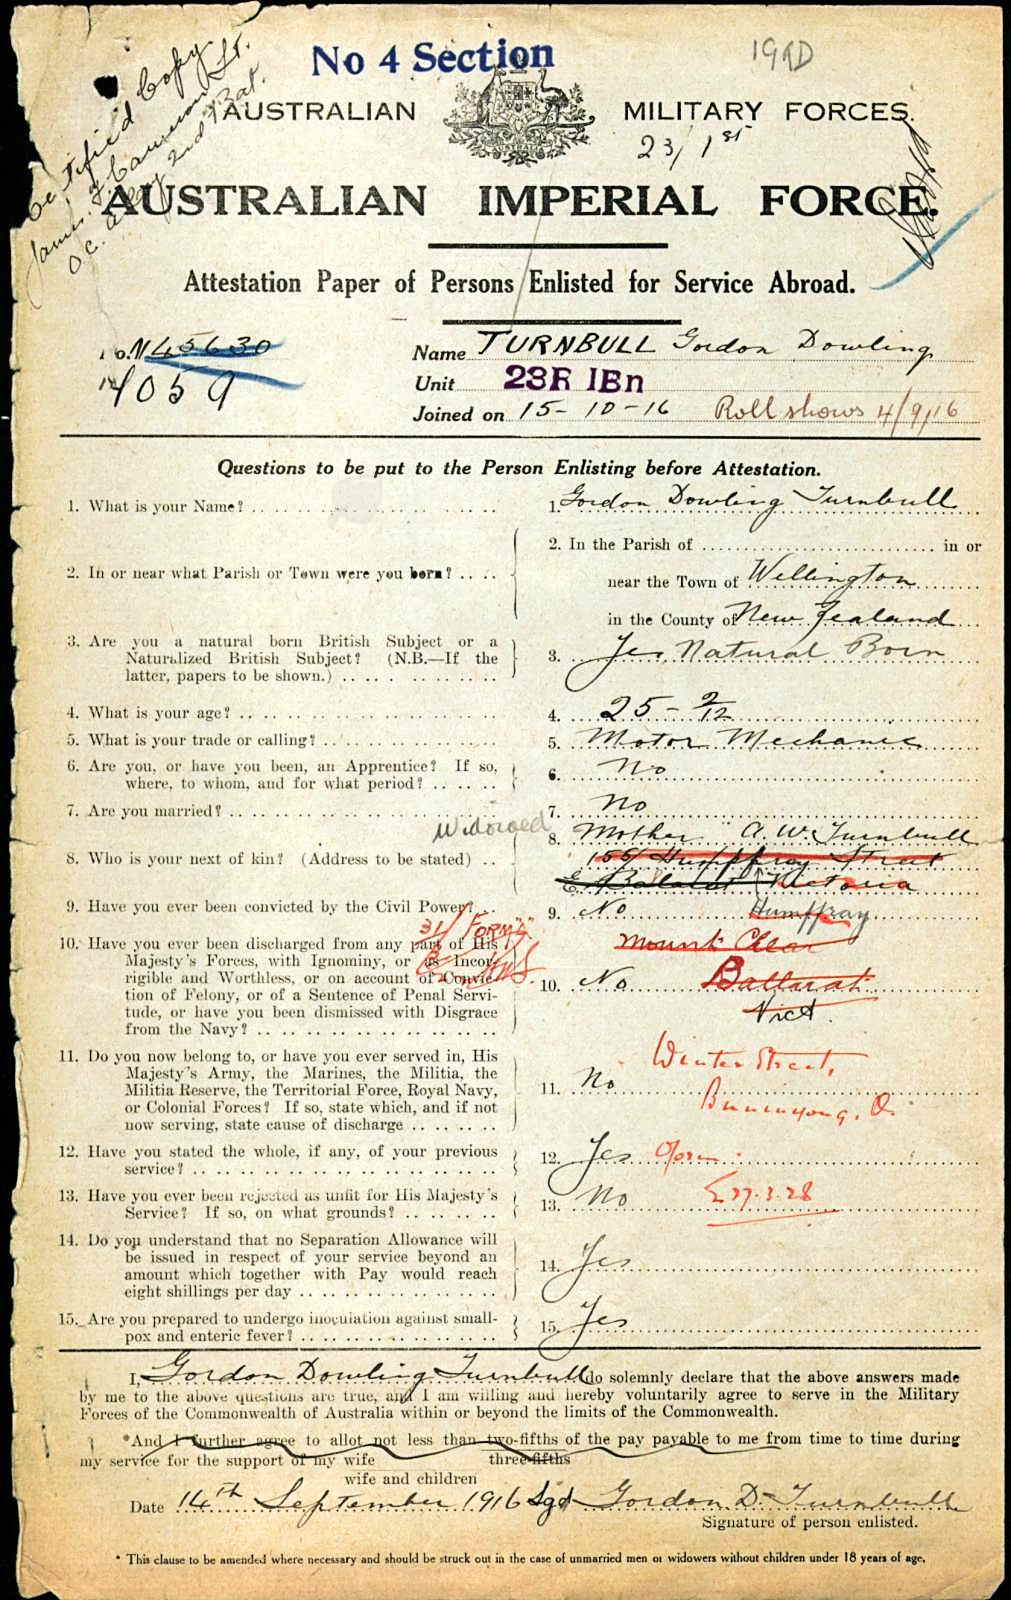 No 4 Section
AUSTRALIAN MILITARY FORCES.
Certified Copy
23/1st
AUSTRALIAN IMPERIAL FORCE.
Attestation Paper of Persons Enlisted for Service Abroad.
No. N45630
4059
Name TURNBULL Gordon Dowling
Unit 23R IBn
Joined on 15-10-16 Roll shows 4/9/16
Questions to be put to the Person Enlisting before Attestation.
1. What is your Name? 1. Gordon Dowling Turnbull
2. In or near what Parish or Town were you born? 2. In the Parish of in or
near the Town of Wellington
in the County of New Zealand
3. Are you a natural born British Subject or a
Naturalized British Subject? (N.B.—If the
latter, papers to be shown.) 3. Yes Natural Born
4. What is your age? 4. 25-2/12
5. What is your trade or calling? 5. Motor Mechanic
6. Are you, or have you been, an Apprentice? If so,
where, to whom, and for what period? 6. No
7. Are you married? 7. No
Widowed
8. Who is your next of kin? (Address to be stated) 8. Mother A. W. Turnbull
155 Humffray Street
E Ballarat Victoria
9. Have you ever been convicted by the Civil Power? 9. No Humffray
31/ Form
Mount Clear
Ballarat
Vict.
10. Have you ever been discharged from any part of His
Majesty's Forces, with Ignominy, or as Incor-
rigible and Worthless, or on account of Convic-
tion of Felony, or of a Sentence of Penal Servi-
tude, or have you been dismissed with Disgrace
from the Navy? 10. No
11. Do you now belong to, or have you ever served in, His
Majesty's Army, the Marines, the Militia, the
Militia Reserve, the Territorial Force, Royal Navy,
or Colonial Forces? If so, state which, and if not
now serving, state cause of discharge 11. No
Winter Street,
Buninyong,
12. Have you stated the whole, if any, of your previous
service? 12. Yes
13. Have you ever been rejected as unfit for His Majesty's
Service? If so, on what grounds? 13. No
27.3.28
14. Do you understand that no Separation Allowance will
be issued in respect of your service beyond an
amount which together with Pay would reach
eight shillings per day 14. Yes
15. Are you prepared to undergo inoculation against small-
pox and enteric fever? 15. Yes
I, Gordon Dowling Turnbull do solemnly declare that the above answers made
by me to the above questions are true, and I am willing and hereby voluntarily agree to serve in the Military
Forces of the Commonwealth of Australia within or beyond the limits of the Commonwealth.
*And I further agree to allot not less than two-fifths of the pay payable to me from time to time during
my service for the support of my wife three-fifths
wife and children
Date 14th September 1916 Sgd Gordon D. Turnbull
Signature of person enlisted.
* This clause to be amended where necessary and should be struck out in the case of unmarried men or widowers without children under 18 years of age.